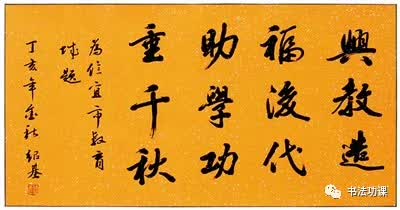 興教造
福後代
助學功
垂千秋
為信宜市教育
城題
丁亥年金秋 紹基
书法功课